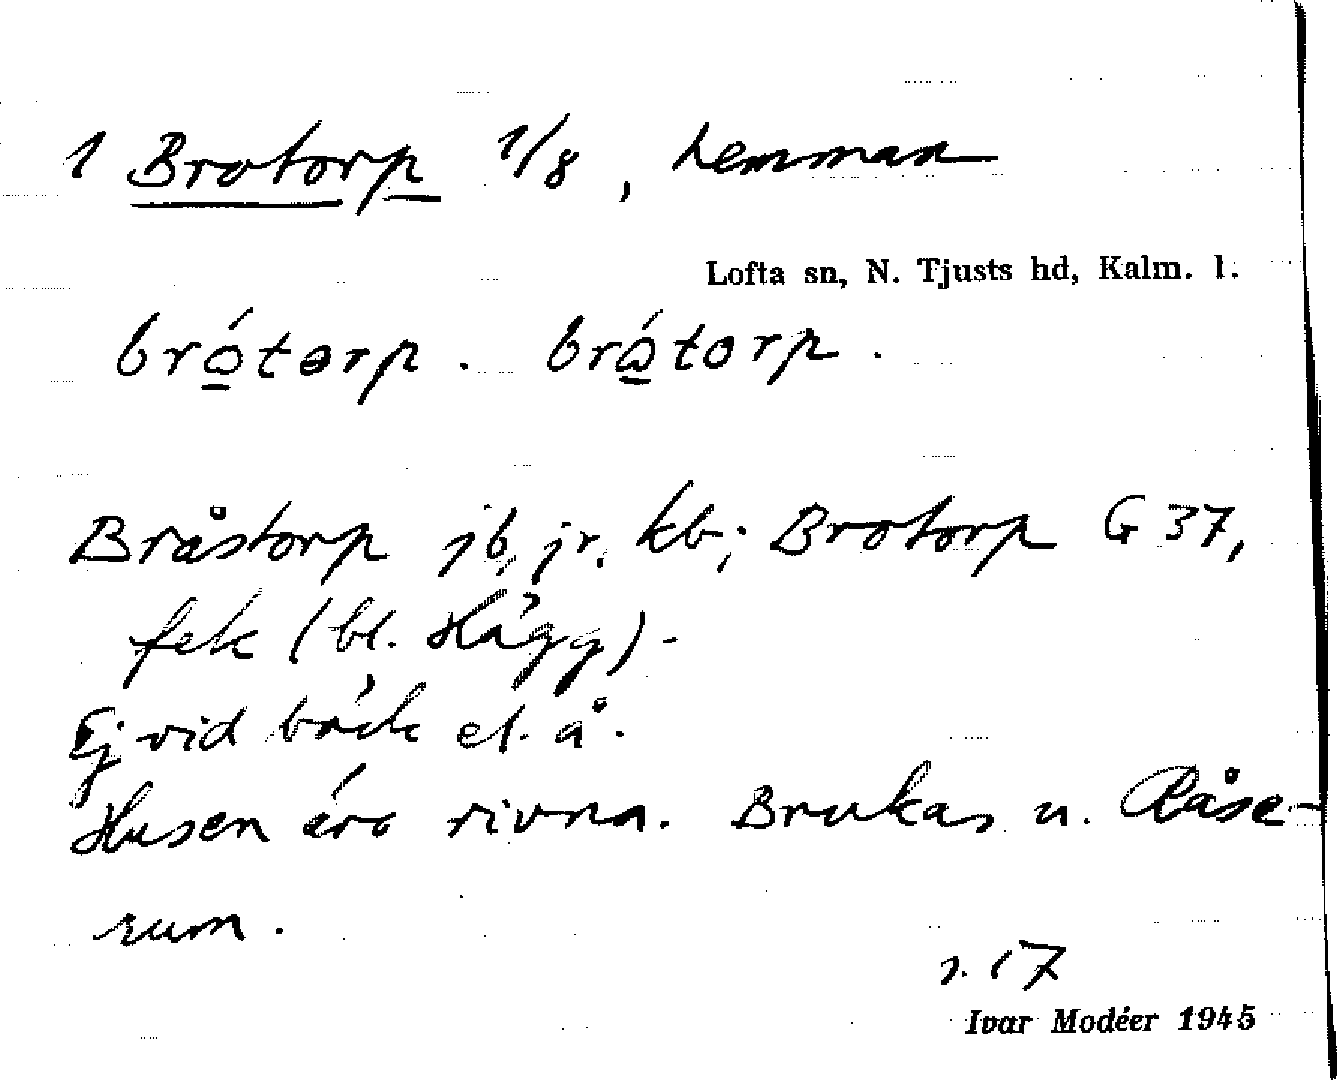 1 Brotorp 1/8, hemman
Lofta sn, N. Tjusts hd, Kalm. l.
Bråstorp jb, jr, kb; Brotorp G 37,
fek (bl. Hägg).
Ej vid bäck el. å.
Husen äro rivna. Brukas u. Råse-
rum.
s. 17
Ivar Modéer 1945